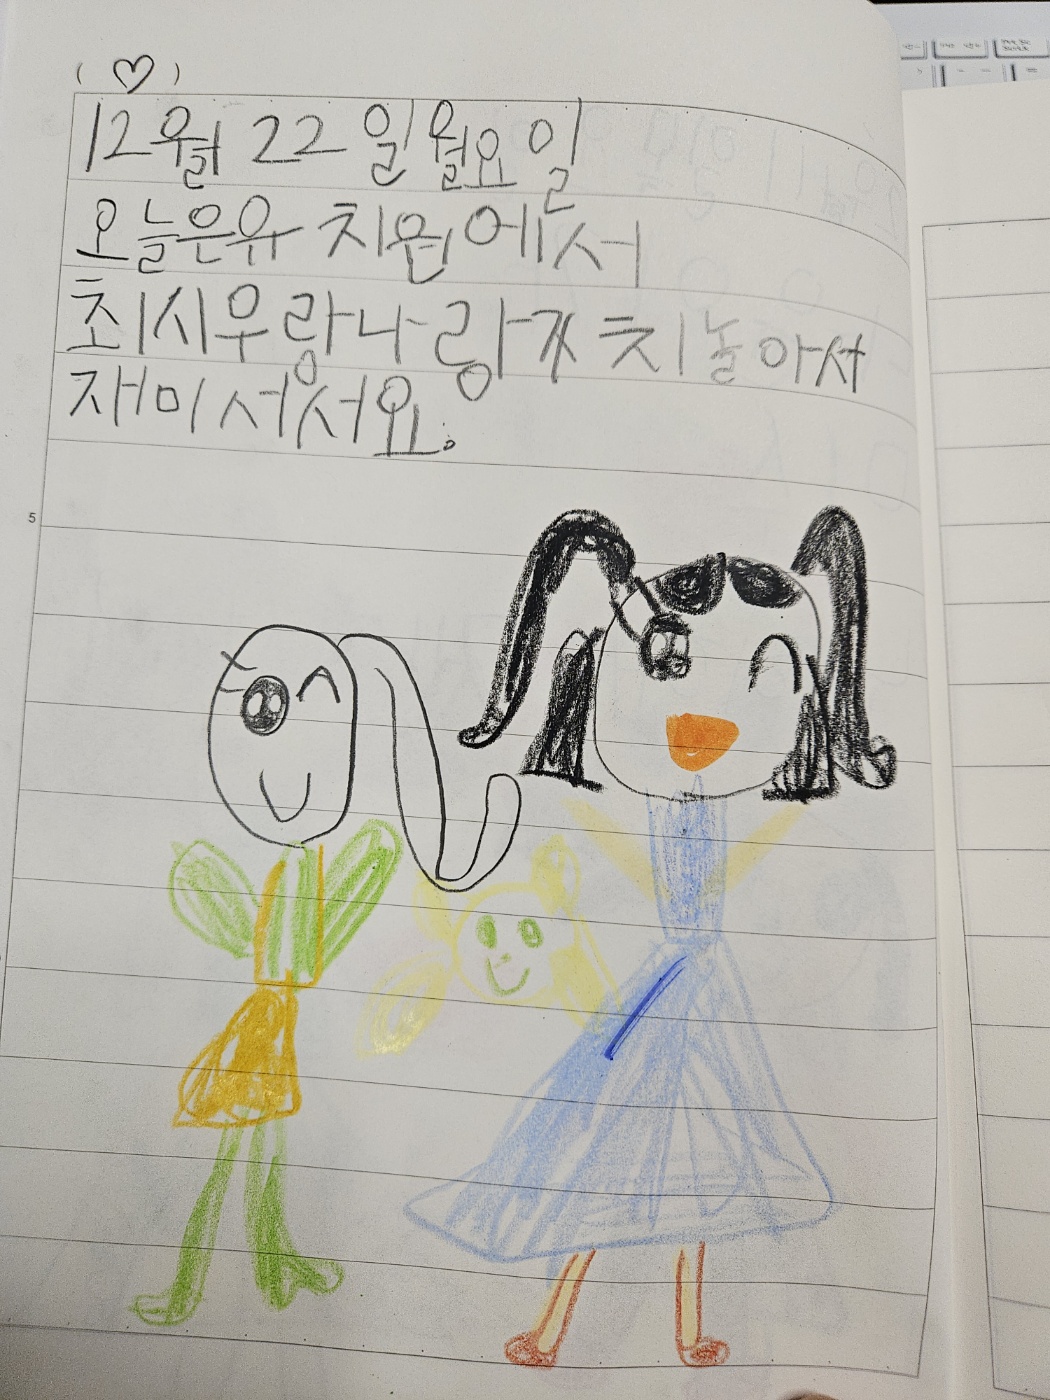 (♡)
12월 22일 월요일
오늘은 유치원에서
최시우랑 나랑 가치 놀아서
재미서서요.
5